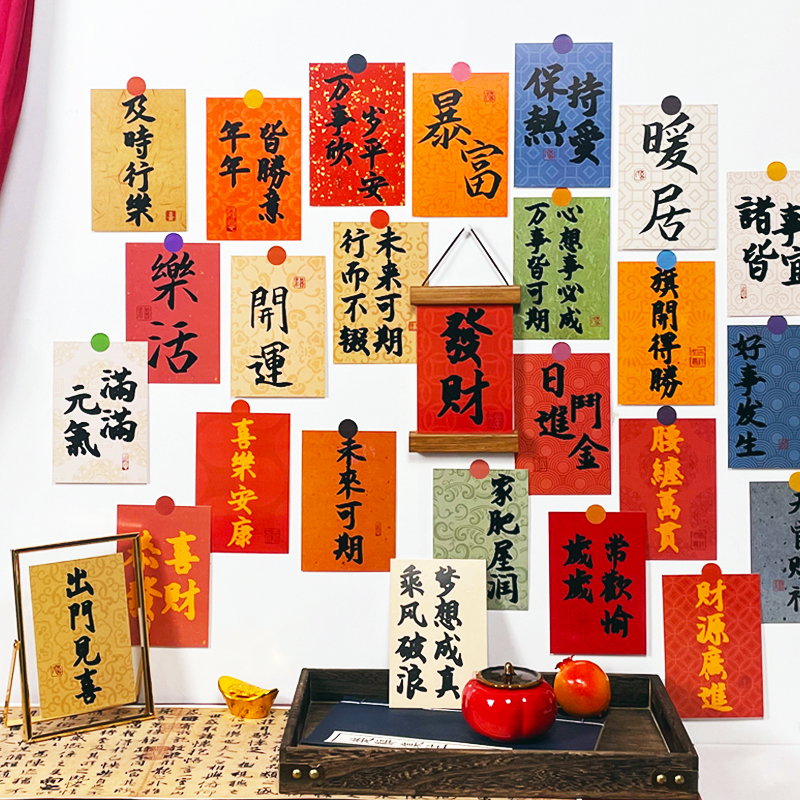 及時行樂
年年
皆勝意
万事欣
岁平安
暴富
保持
熱愛
暖居
諸事
皆宜
樂活
開運
行而不辍
未来可期
心想事必成
万事皆可期
旗開得勝
好事发生
滿滿
元氣
喜樂安康
未來可期
發財
日進
鬥金
腰纏萬貫
家肥屋润
歲歲
常歡愉
喜財
財源廣進
出門見喜
梦想成真
乘风破浪